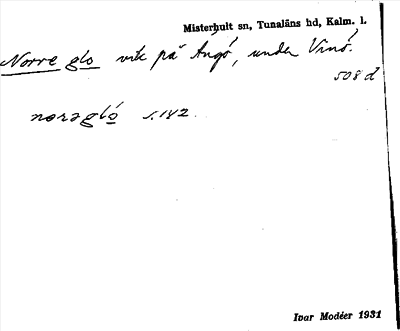 Misterhult sn, Tunaläns hd, Kalm. l.
Norre glo vik på Ängö, under Vinö.
508 d
nørəgló s. 182.
Ivar Modéer 1931